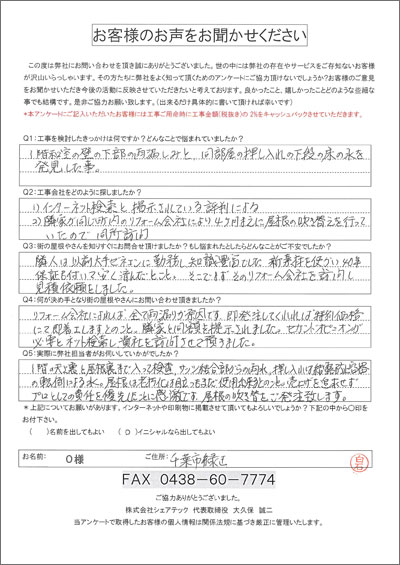 お客様のお声をお聞かせください
この度は弊社にお問い合わせを頂き誠にありがとうございました。世の中には弊社の存在やサービスをご存知ないお客様
が沢山いらっしゃいます。その方たちに弊社をよく知って頂くためのアンケートにご協力頂けないでしょうか?お客様のご意見
をお聞かせいただき今後の活動に反映させていただきたいと考えております。良かったこと、嬉しかったことどのような些細な
事でも結構です。是非ご協力お願い致します。(出来るだけ具体的に書いて頂ければ幸いです)
*本アンケートにご記入いただいたお客様には工事ご用命時に工事金額(税抜き)の2%をキャッシュバックさせていただきます。
Q1:工事を検討したきっかけは何ですか?どんなことで悩まれていましたか?
1階和室の壁の下部の雨漏しみと、同部屋の押し入れの下段の床の水を
発見した事。
Q2:工事会社をどのように探しましたか?
1)インターネット検索と掲示されている評判による
2)隣家が同じ所内のリフォーム会社により4ヶ月まえに屋根の吹き替えを行って
いたので同所訪問
Q3:街の屋根やさんを知りすぐにお問合せ頂けましたか?もし悩まれたとしたらどんなことがご不安でしたか?
隣人は以前大手ゼネコンに勤務し知識豊富でした 新素材を使い40年
保証も付いマシで済んだとこと。そこでまずそのリフォーム会社を訪問し
見積依頼をしました。
Q4:何が決め手となり街の屋根やさんにお問い合わせ頂きましたか?
リフォーム会社によれば、全て雨漏りが原因です。即発注してくれれば特別価格
にて即着工しますとのこと。隣家と同額を提示されました。セカンドオピニオンが
必要とネット検索し貴社を訪問させて頂きました。
Q5:実際に弊社担当者がお伺いしていかがでしたか?
1階の天井裏と屋根裏まで入って検査。サッシ結合部からの雨もれ、押し入れは
の転倒による水。屋根は老朽化は目立つもまだ使用可能とのこと。売上げを追求せず
プロとしての責任を優先したことに感動し、屋根の吹き替をご発注致します。
*上記についてお願いがあります。インターネットや印刷物に掲載させて頂いてもよろしいでしょうか?下記の中から〇印を
お付け下さい。
( )名前を出してもよい (O)イニシャルなら出してもよい
お名前: O様 ご住所: 千葉市緑区
FAX 0438-60-7774
ご協力ありがとうございました。
株式会社シェアテック 代表取締役 大久保 誠二
当アンケートで取得したお客様の個人情報は関係法規に基づき厳正に管理いたします。